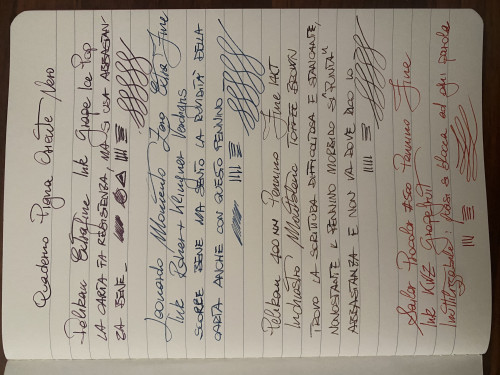 Quaderno Pigna Caiente Nero
Pelikan Extrafine Ink Grape Ice Pop
LA CARTA FA RESISTENZA MA SI USA ABBASTAN-
ZA BENE.
Leonardo Momento Zero Extra Fine
Ink Rohrer & Klingner Verdigris
SCORRE BENE MA SENTO LA RUVIDITÀ DELLA
CARTA ANCHE CON QUESTO PENNINO
Pelikan 400 NN Pennino Fine
Inchiostro Montblanc TOFFEE BROWN
TROVO LA SCRITTURA DIFFICOLTOSA E STANCANTE,
NONOSTANTE IL PENNINO MORBIDO SI "PUNTA"
ABBASTANZA E NON VA DOVE DICO IO
Sailor Procolor 500 Pennino Fine
Ink KWZ Grapefruit
Inutilizzabile, passi si blocca ad ogni parola